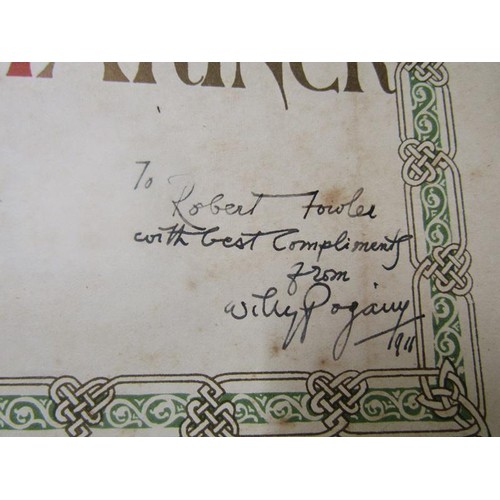 MARINER
To
Robert Fowler
with best Compliments
from
Willy Pogány
1911